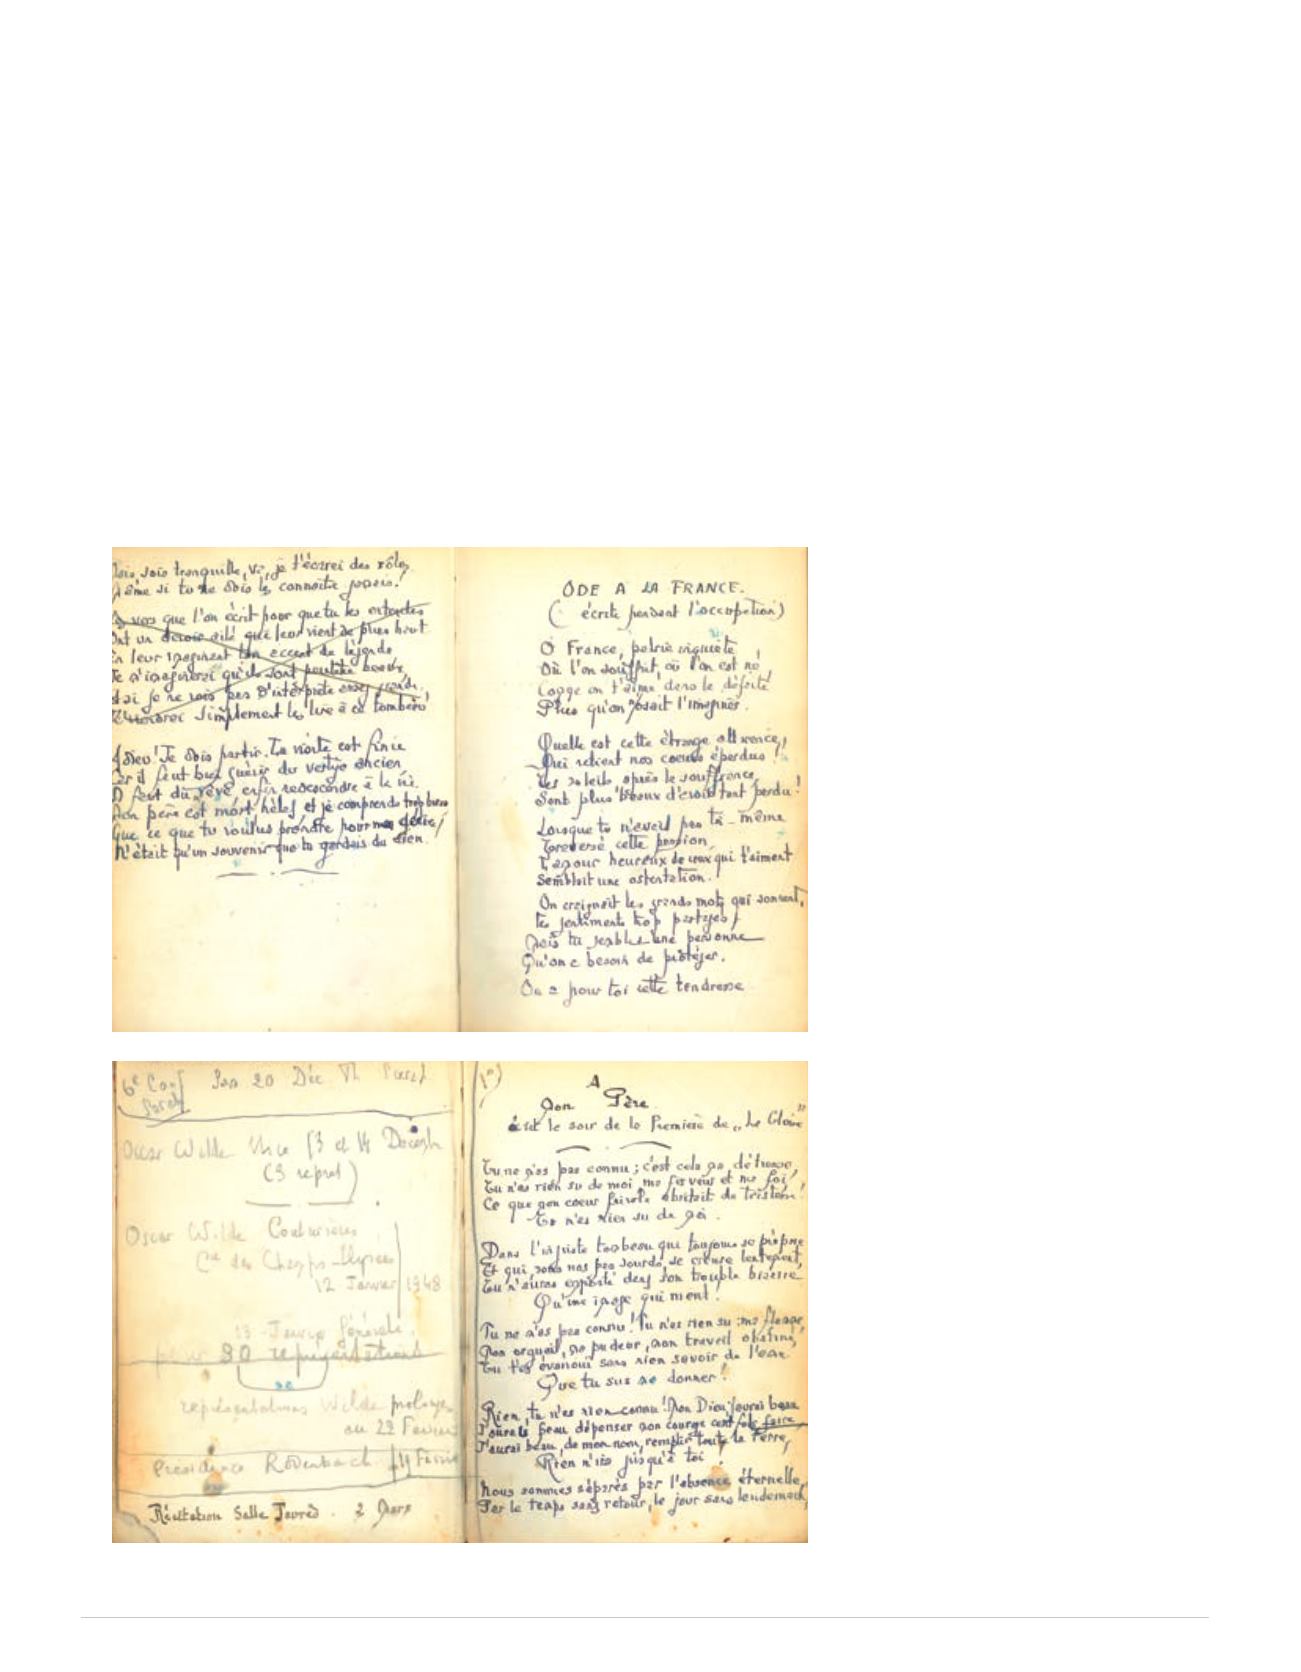 sois tranquille, va, je t'écrirai des rôles
même si tu ne dois les connaître jamais!
vers que l'on écrit pour que tu les
Ont un devoir ailé qui leur vient de plus haut
En leur imaginant ton accent de légende
Je m'imaginerai qu'ils sont peut-être beaux
je ne vois pas d'interprète assez grande,
simplement les lire à ce tombeau
Adieu! Je dois partir. La visite est finie
Car il faut bien guérir du vertige ancien
Il faut du rêve enfin redescendre à la vie.
Mon père est mort, hélas! et je comprends trop bien
Que ce que tu voulus prendre pour mon génie,
N'était qu'un souvenir que tu gardais du sien.
ODE A LA FRANCE.
(écrite pendant l'occupation)
O France, patrie inquiète,
Où l'on souffrit, où l'on est né,
Comme on t'aime dans la défaite
Plus qu'on n'osait l'imaginer.
Quelle est cette étrange attirance,
Qui retient nos coeurs éperdus!
Les soleils après la souffrance
Sont plus beaux d'avoir tant perdu!
Lorsque tu n'avais pas toi-même
Traversé cette passion,
L'amour heureux de ceux qui t'aiment
Semblait une ostentation.
On craignait les grands mots qui sonnent,
Les sentiments trop partagés,
Mais tu sembles une personne
Qu'on a besoin de protéger.
On a pour toi cette tendresse
6e Conf 20 Déc
Oscar Wilde Nice 13 et 14 Décemb
(3 repres)
Oscar Wilde Couturières
Cie des Champs-Elysées
12 Janvier 1948
13 - Générale
pour 30 représentations
représentations Wilde prolongées
au 22 Février
Présidence Rodenbach 14 Février
Récitation Salle 2 Mars
1°)
A
Mon Père
écrit le soir de la Première de "La Gloire"
Tu ne m'as pas connu; c'est cela ma détresse,
Tu n'as rien su de moi, ma ferveur et ma foi,
Ce que mon coeur frivole abritait de tristesse!
Tu n'as rien su de moi.
Dans l'injuste tombeau qui toujours se
Et qui sous nos pas sourds, se creuse lentement,
Tu n'auras emporté dans son trouble bizarre
Qu'une image qui ment!
Tu ne m'as pas connu! Tu n'as rien su: ma flamme,
Mon orgueil, ma pudeur, mon travail obstiné,
Tu t'es évanoui sans rien savoir de l'âme
Que tu sus me donner!
Rien, tu n'as rien connu! Mon Dieu j'aurai beau
J'aurai beau dépenser mon courage
J'aurai beau, de mon nom, remplir toute la Terre,
Rien n'ira jusqu'à toi!
Nous sommes séparés par l'absence éternelle,
Par le temps sans retour, le jour sans lendemain,